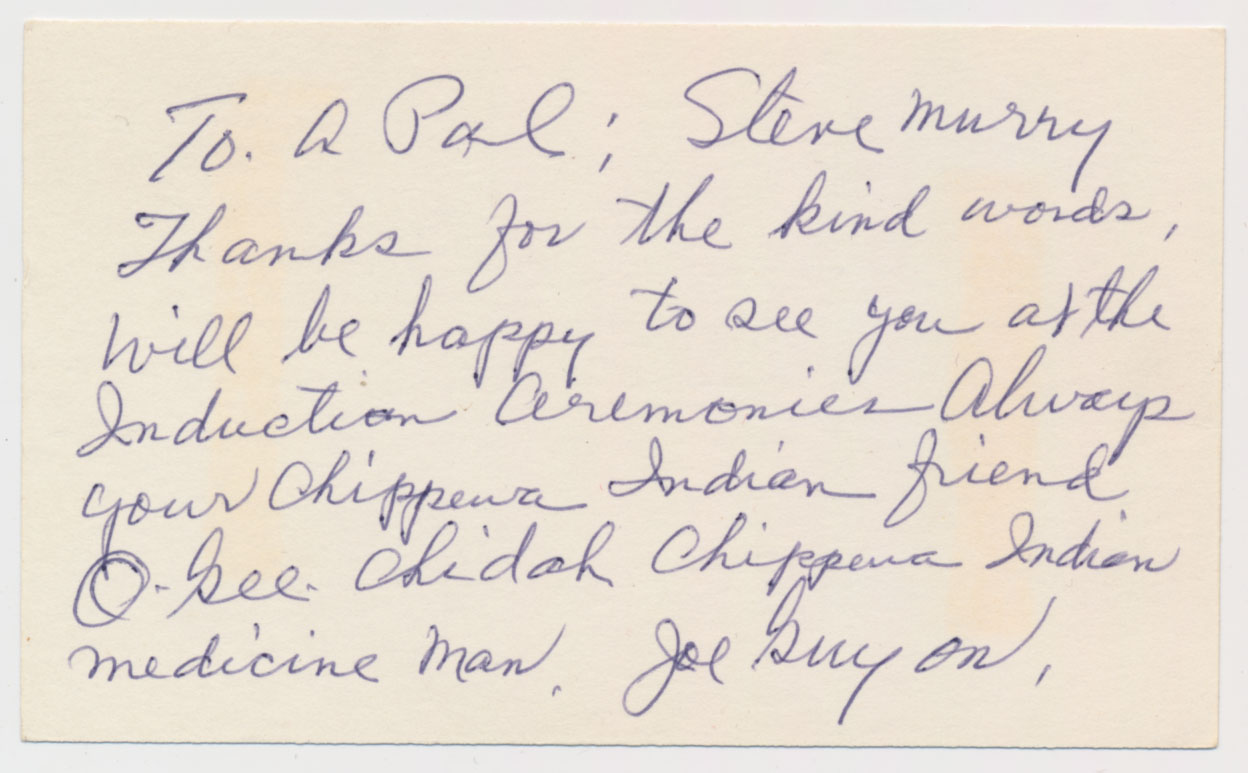 To. A Pal; Steve Murry
Thanks for the kind words,
Will be happy to see you at the
Induction Ceremonies Always
your Chippewa Indian friend
O-Gee-Chidah Chippewa Indian
medicine Man. Joe Guyon,